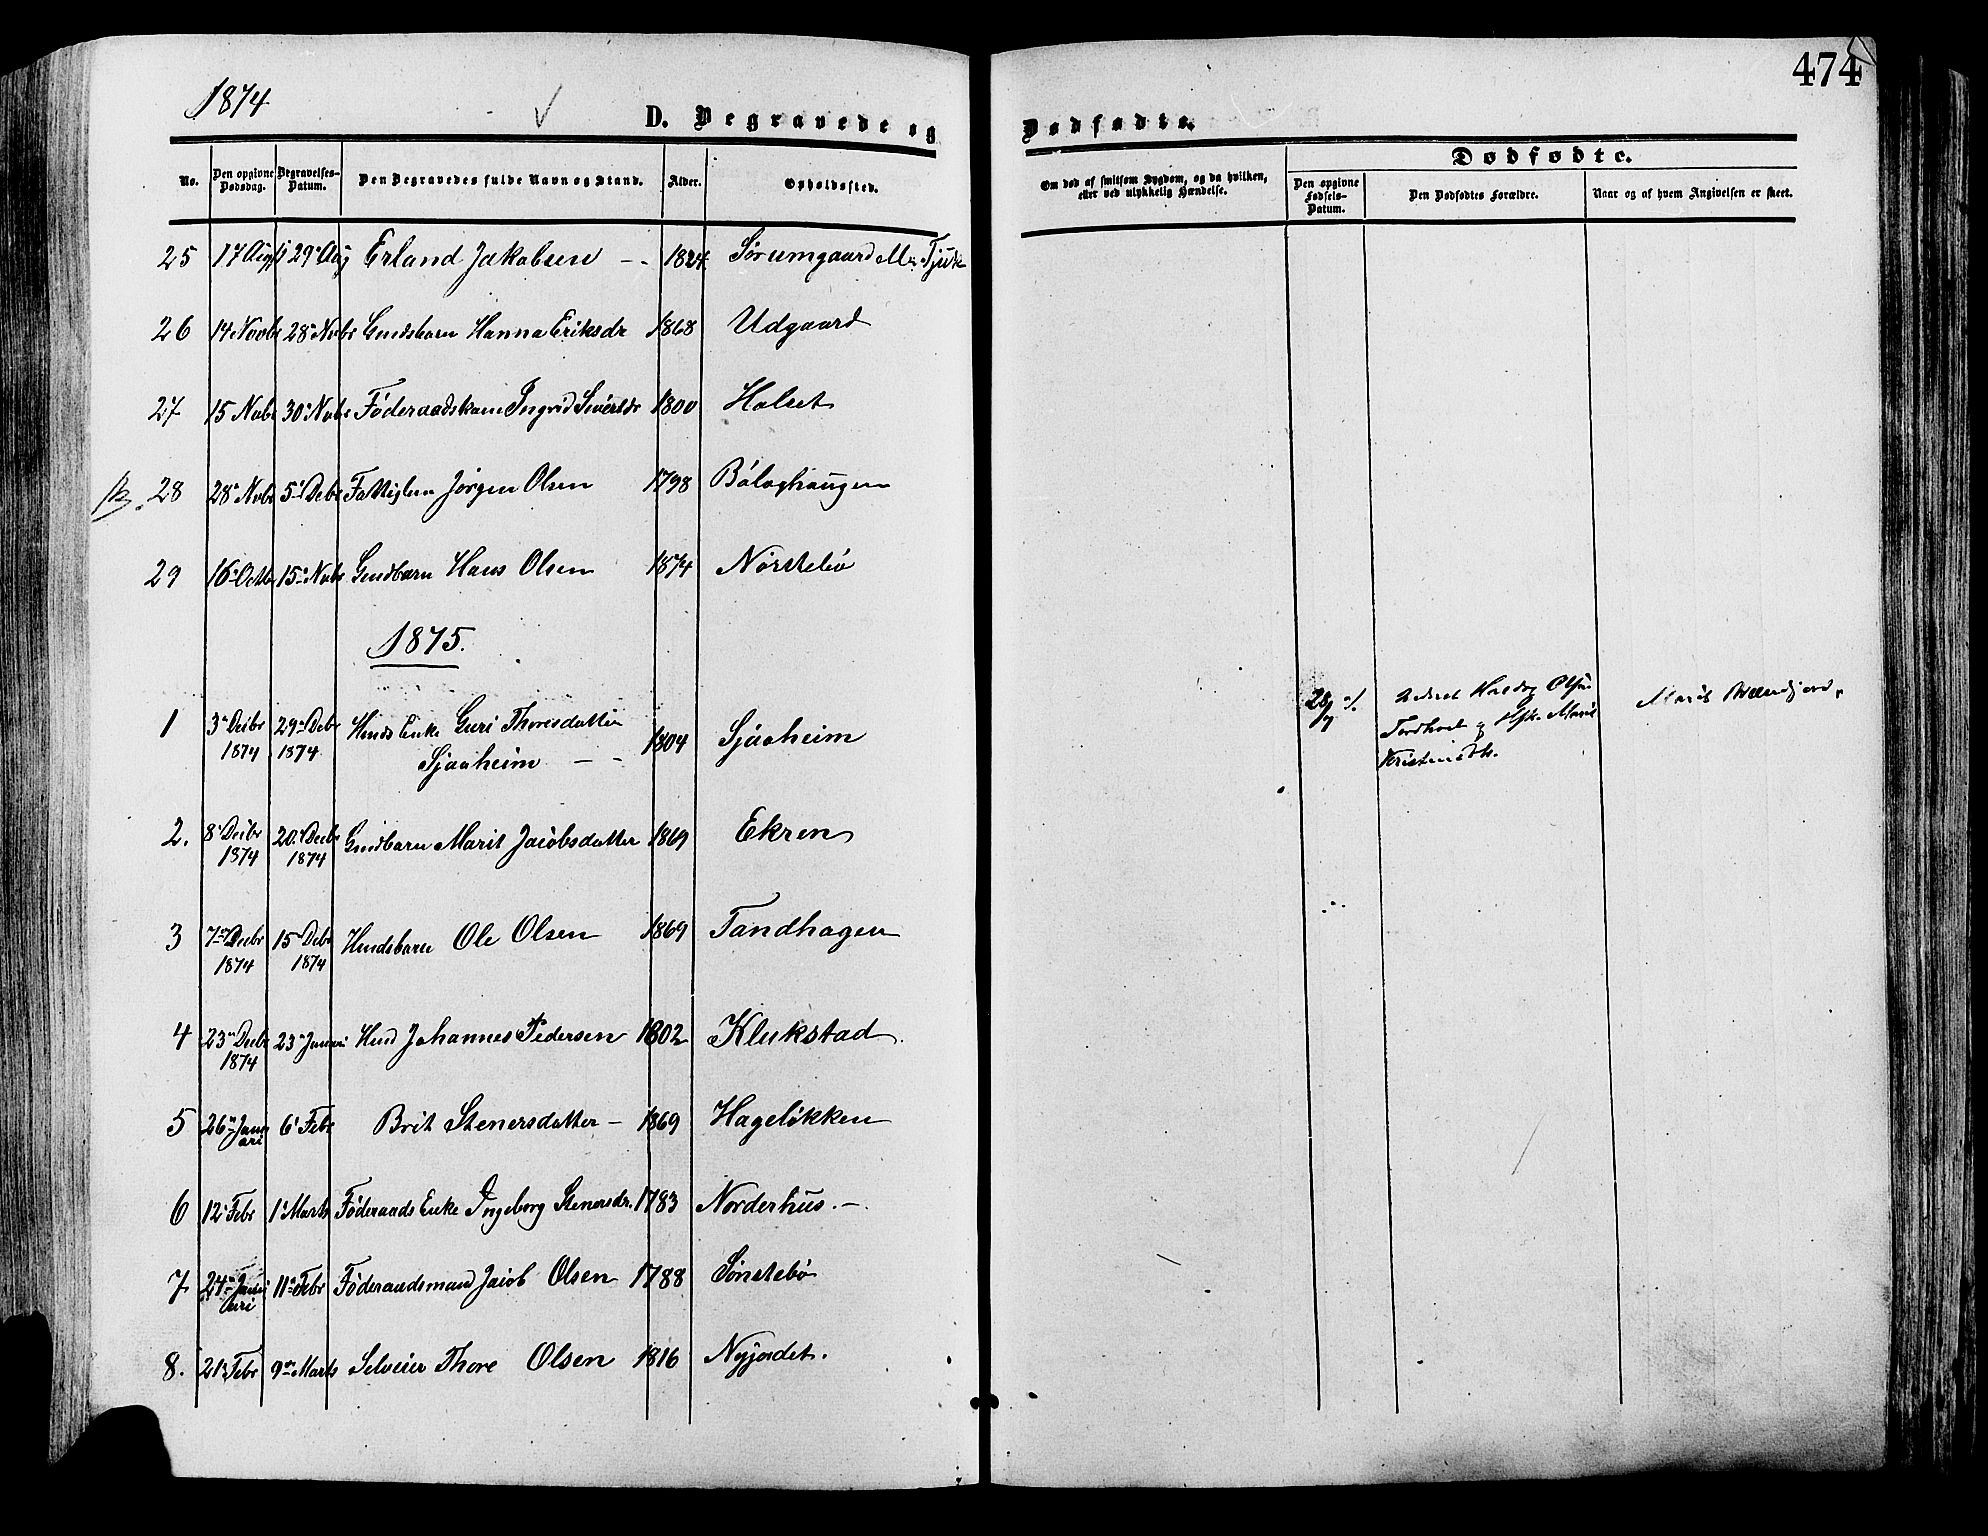 474
1874
D. Begravede og Dødfødte.
Dødfødte.
No. Den opgivne Dødsdag. Begravelses-Datum. Den Begravedes fulde Navn og Stand. Alder. Opholdssted.
Om død af smitsom Sygdom, og da hvilken, eller ved ulykkelig Hændelse. Den opgivne Fødsels-Datum. Den Dødfødtes Forældre. Naar og af hvem Angivelsen er skeet.
25 17 Aug 29 Aug Erland Jakobsen - - 1824 Sørumgaard
26 14 Novbr 28 Nvbr Gmdsbarn Hanna Eriksdr 1868 Udgaard
27 15 Nvbr 30 Nvbr Føderaadskone Ingrid Sivertsdr 1800 Holset
28 28 Nvbr 5 Debr Fattiglem Jørgen Olsen 1798
29 16 Octbr 15 Nvbr Gmdbarn Hans Olsen 1874 Nørstebø
1875.
1 3 Decbr 29 Debr Hmds Enke Guri Thoresdatter 1804 Sjaaheim
1874 1874 Sjaaheim - -
28/7
Kristensdtr. Marit
2. 8 Decbr 20 Decbr Gmdbarn Marit Jacobsdatter 1869 Ekren
1874 1874
3 7 Decbr 15 Debr Hmdsbarn Ole Olsen 1869 Tandhagen
1874 1874
4 23 Decbr 23 Januari Hmd Johannes Pedersen 1802 Klukstad
1874
5 26 Janu 6 Febr Brit Stenersdatter - 1869 Hageløkken
ari
6 12 Febr 1 Marts Føderaads Enke Ingeborg Stenersdr. 1783 Norderhus. -
7 24 Janu 11 Febr Føderaadsmand Jacob Olsen 1788 Sønstebø
ari
8. 21 Febr 9 Marts Selveier Thore Olsen 1816 Nyjordet.